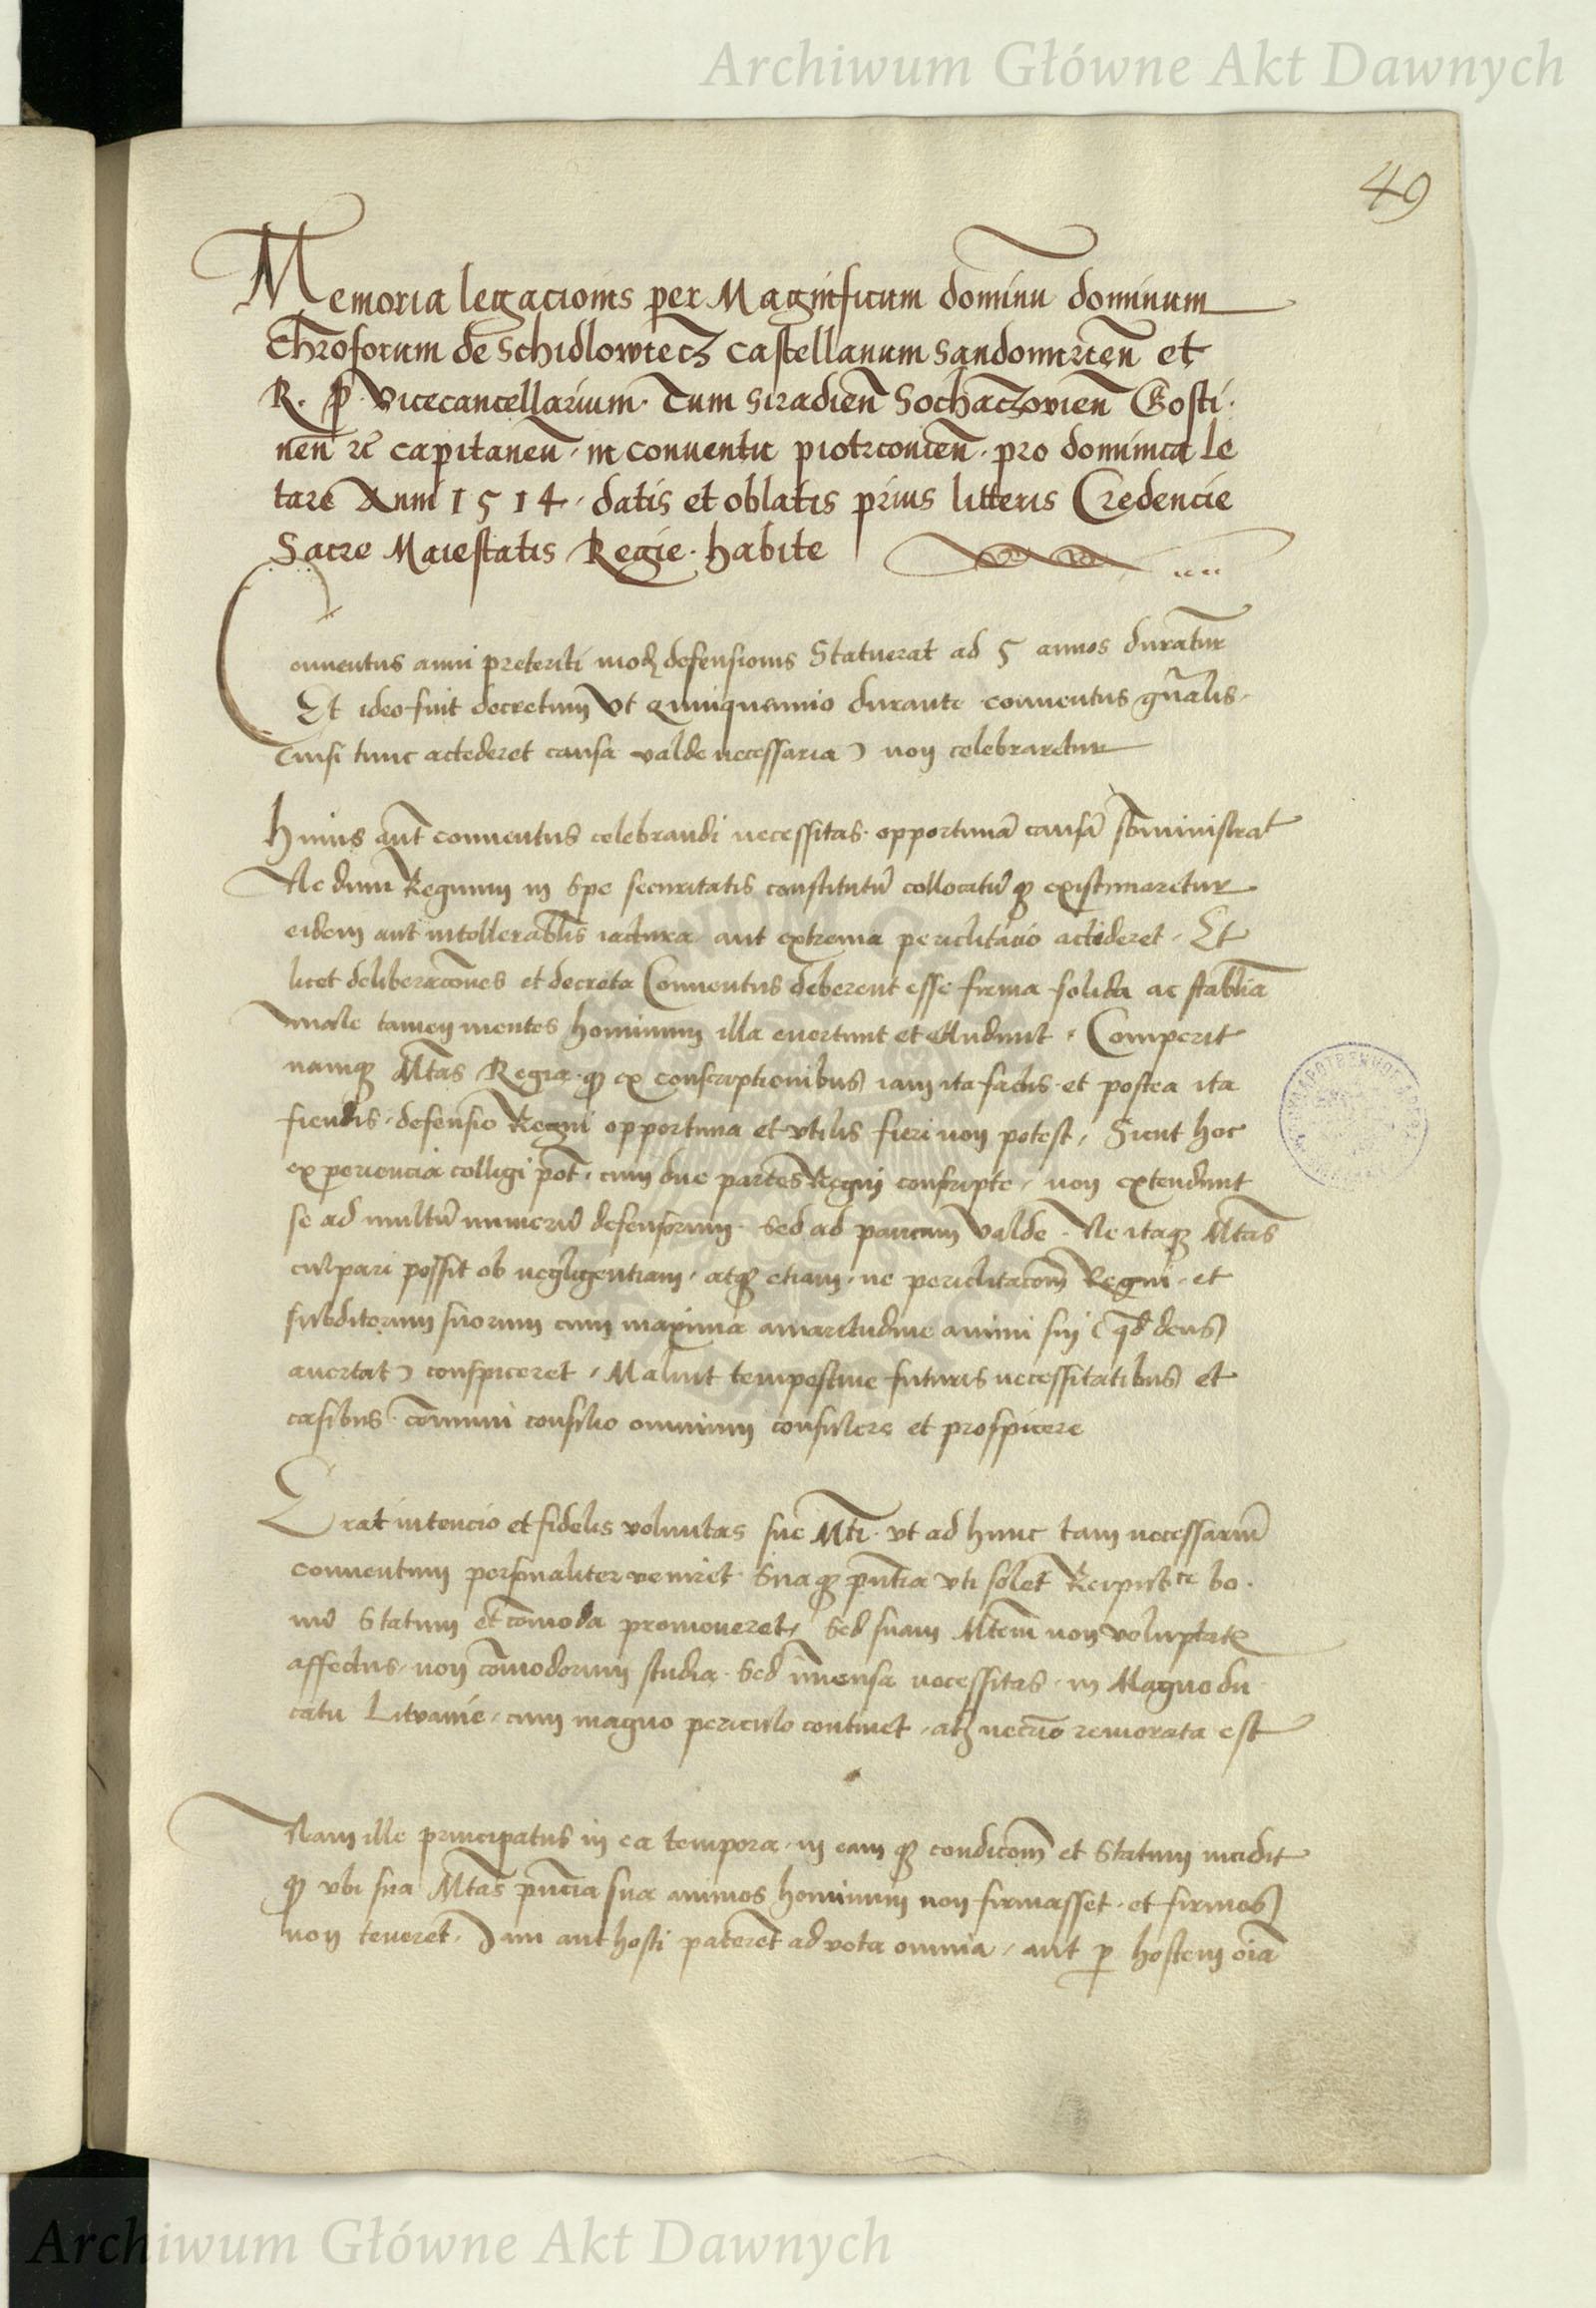 Archiwum Główne Akt Dawnych
49
Memoria legacionis per Magnificum dominu dominum
Chr̄oforum de Schidlowiecz castellanum Sandomirien̄ et
R. p̄. vicecancellarium. Tum Siradien̄ Sochaczovien̄ Gosti
nen̄ zc̄ capitaneu̅. in conventu piotrcovien̄. pro dominica Le
tare Anni 1514. datis et oblatis prius litteris Credencie
Sacre Maiestatis Regie. habite
Conventus anni preteriti mod̨ defensionis Statuerat ad 5 annos duratur̄
Et ideo fuit decretum Vt quinquennio durante conventus gn̄alis.
(nisi tunc accederet causa valde necessaria) non celebraretur
Huius aut̄ conventus celebrandi necessitas. opportunā causā sb̄ministrat
Ne dum Regnum in spe securitatis constitutū collocatūq̨ existimaretur
eidem aut intollerabl̄is iactura aut extrema periclitatio accideret. Et
licet deliberacōnes et decreta Conventus deberent esse firma solida ac stabl̄ia
male tamen mentes hominum illa evertunt et eludunt. Comperit
namq̨ Mt̄as Regia. q̨ ex conscriptionibus iam ita factis et postea ita
fiendis. defensio Regni opportuna et vtilis fieri non potest, Sicut hoc
experiencia colligi pōt. cum due partes Regni conscripte, non extendunt
se ad multū numerū defensorum. Sed ad paucum valde. Ne itaq̨ Mt̄as
culpari possit ob negligentiam, atq̨ etiam, ne periclitacōm̄ Regni. et
subditorum suorum cum maxima amaritudine animi sui (qd̄ deus
avertat) conspiceret, Maluit tempestive futuris necessitatibus et
casibus. cōmuni consilio omnium consulere et prospicere
Erat intencio et fidelis voluntas sue Mt̄i. vt ad hunc tam necessariū
conventum personaliter veniret. Suaq̨ pn̄tia vti solet Reipub.ce bo.
nū Statum et cōmoda promoveret, Sed suam Mt̄em̄ non voluptat̨
affectus, non cōmodorum studia. Sed īmensa necessitas. in Magno du
catu Litvanie, cum magno periculo continet, at̨ necrō remorata est
Nam ille principatus in ea tempora. in eamq̨ condicōm̄ et Statum incidit
q̨ vbi sua Mt̄as pn̄cia sua animos hominum non firmasset. et firmos
non teneret. Iam aut hosti pateret̄ ad vota omnia, aut p̱ hostem oīa
Archiwum Główne Akt Dawnych